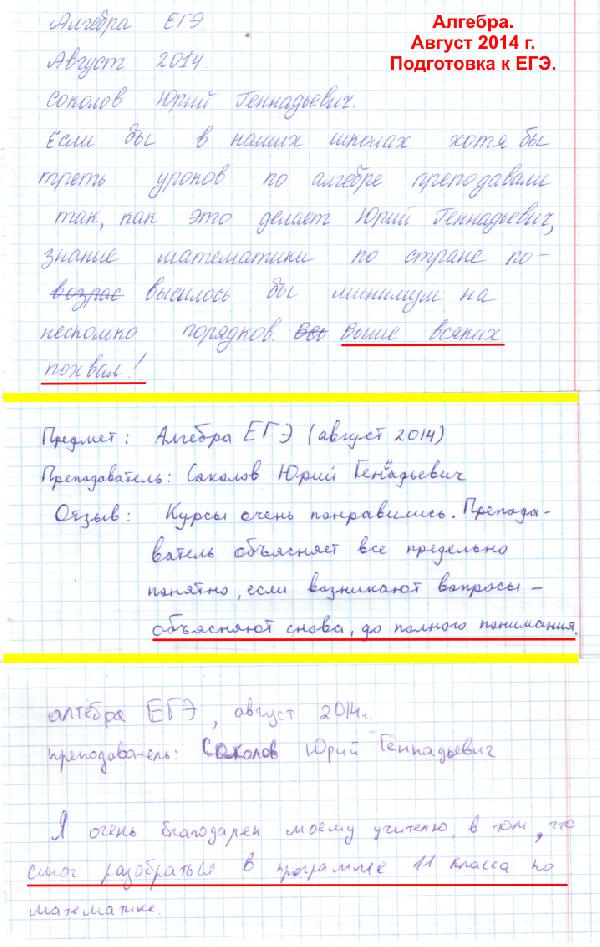 Алгебра ЕГЭ.
Август 2014.
Алгебра.
Август 2014 г.
Подготовка к ЕГЭ.
Соколов Юрий Геннадьевич.
Если бы в наших школах хотя бы
треть уроков по алгебре преподавали
так, как это делает Юрий Геннадьевич,
знание математики по стране по-
возрас высилось бы минимум на
несколько порядков. Выше всяких
похвал!
Предмет: Алгебра ЕГЭ (август 2014)
Преподаватель: Соколов Юрий Геннадьевич
Отзыв: Курсы очень понравились. Препода-
ватель объясняет все предельно
понятно, если возникают вопросы –
объясняют снова, до полного понимания.
алгебра ЕГЭ, август 2014г.
преподаватель: Соколов Юрий Геннадьевич
Я очень благодарен моему учителю, в том, что
смог разобраться в программе 11 класса по
математике.